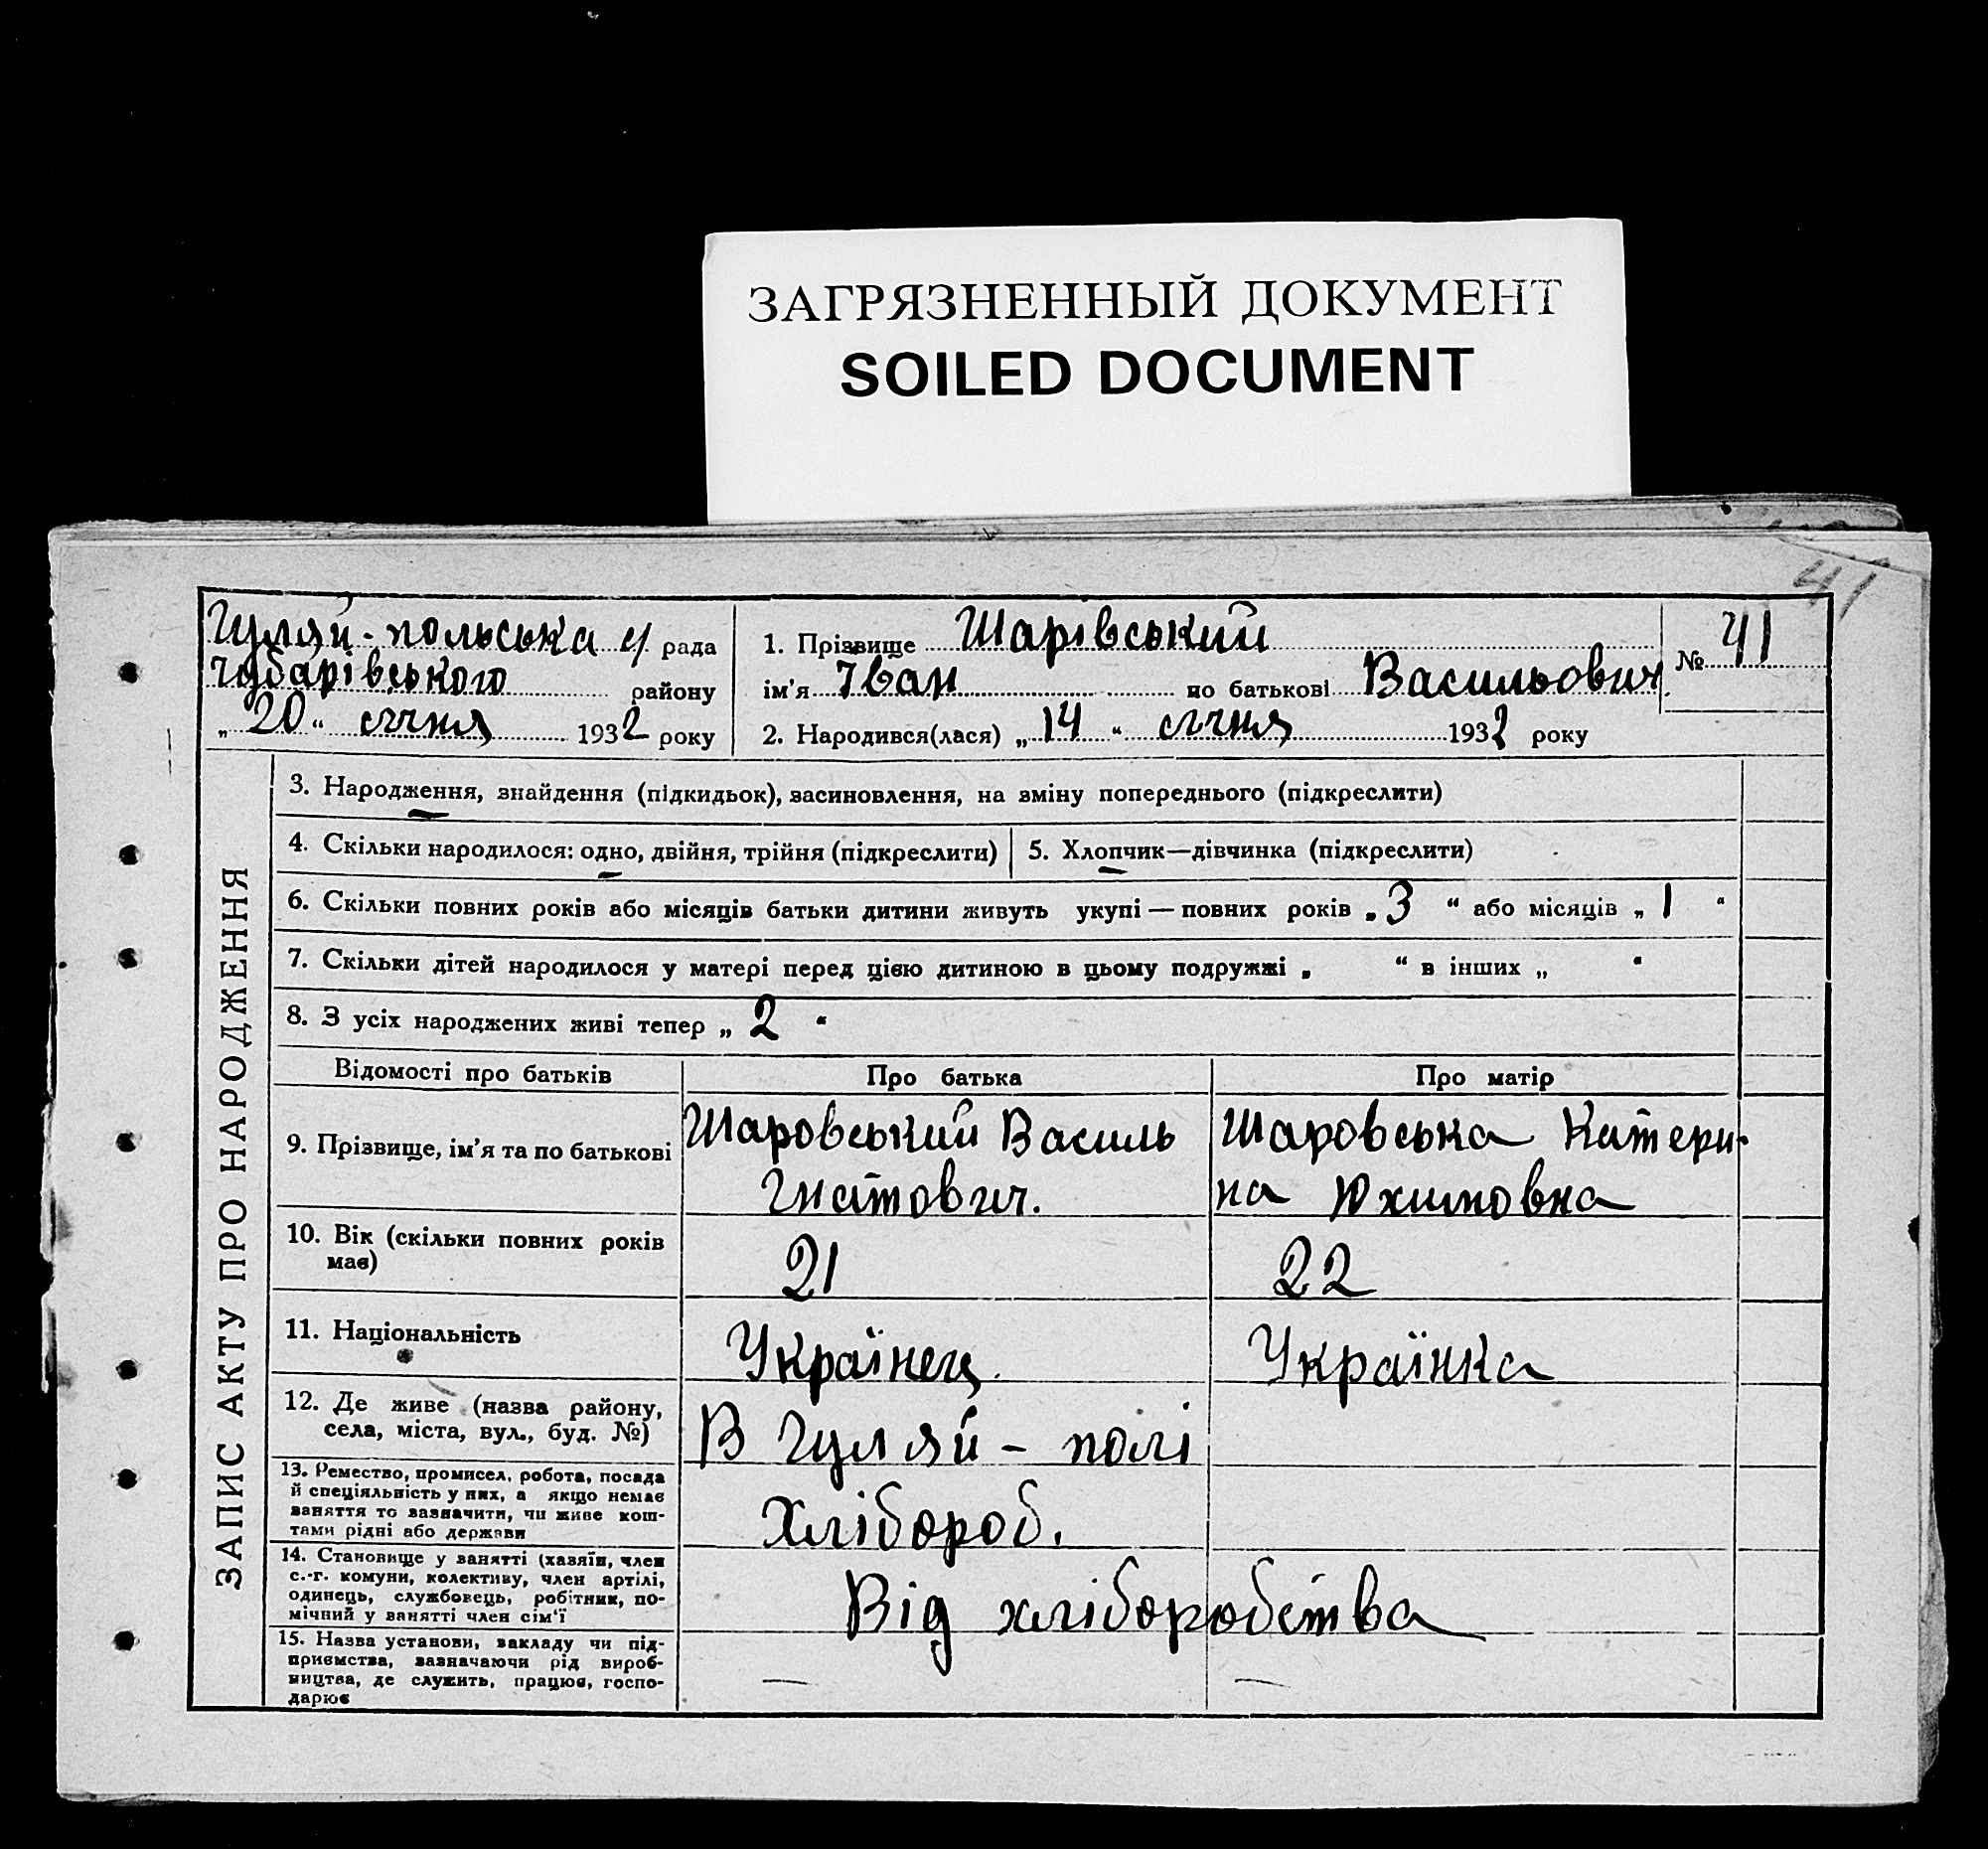 ЗАГРЯЗНЕННЫЙ ДОКУМЕНТ
SOILED DOCUMENT
41
Гуляй-польська с/ рада
Чубарівського району
„ 20 “ січня 1932 року
1. Прізвище Шарівський
ім’я Іван по батькові Васильович
2. Народився(лася) „ 14 “ січня 1932 року
№ 41
ЗАПИС АКТУ ПРО НАРОДЖЕННЯ
3. Народження, знайдення (підкидьок), засиновлення, на зміну попереднього (підкреслити)
4. Скільки народилося: одно, двійня, трійня (підкреслити)
5. Хлопчик—дівчинка (підкреслити)
6. Скільки повних років або місяців батьки дитини живуть укупі — повних років „ 3 “ або місяців „ 1 “
7. Скільки дітей народилося у матері перед цією дитиною в цьому подружжі „ “ в інших „ “
8. З усіх народжених живі тепер „ 2 “
Відомості про батьків
Про батька
Про матір
9. Прізвище, ім’я та по батькові
Шаровський Василь
Гнатович.
Шаровська Катери-
на Юхимовна
10. Вік (скільки повних років
має)
21
22
11. Національність
Українец.
Українка
12. Де живе (назва району,
села, міста, вул., буд. №)
В Гуляй - полі
13. Ремество, промисел, робота, посада
й спеціяльність у них, а якщо немає
заняття то зазначити, чи живе кош-
тами рідні або держави
Хлібороб.
14. Становище у занятті (хазяїн, член
с.-г. комуни, колективу, член артілі,
одинець, службовець, робітник, по-
мічний у занятті член сім’ї
Від хліборобства
15. Назва установи, закладу чи під-
приємства, зазначаючи рід вироб-
ництва, де служить, працює, госпо-
дарює
— —